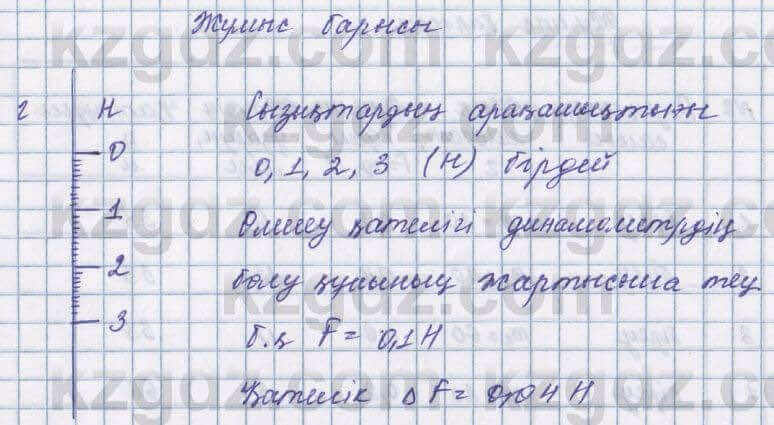 Жұмыс барысы
г Н Сызықтардың арақашықтығы
0 0, 1, 2, 3 (Н) бірдей
1 Өлшеу қателігі динамометрдің
2 бөлу құнының жартысына тең
3 б.қ F = 0,1Н
Қателік ΔF = 0,04 Н
kzgdz.com